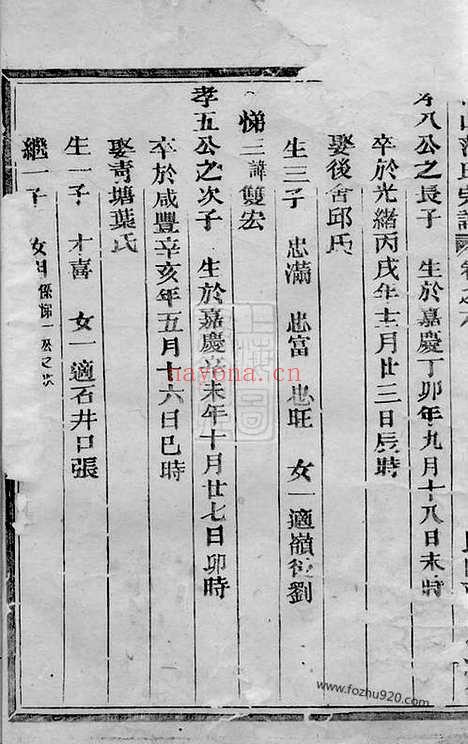 八公之長子 生於嘉慶丁卯年九月十八日未時
卒於光緒丙戌年十二月廿三日辰時
娶後舍邱氏
生三子 忠滿 忠富 忠旺 女一適嶺後劉
悌三諱雙宏
孝五公之次子 生於嘉慶辛未年十月廿七日卯時
卒於咸豐辛亥年五月十六日巳時
娶靑塘葉氏
生一子 才喜 女一適石井口張
繼一子 係悌一公之次
nayona.cn
www.fozhu920.com